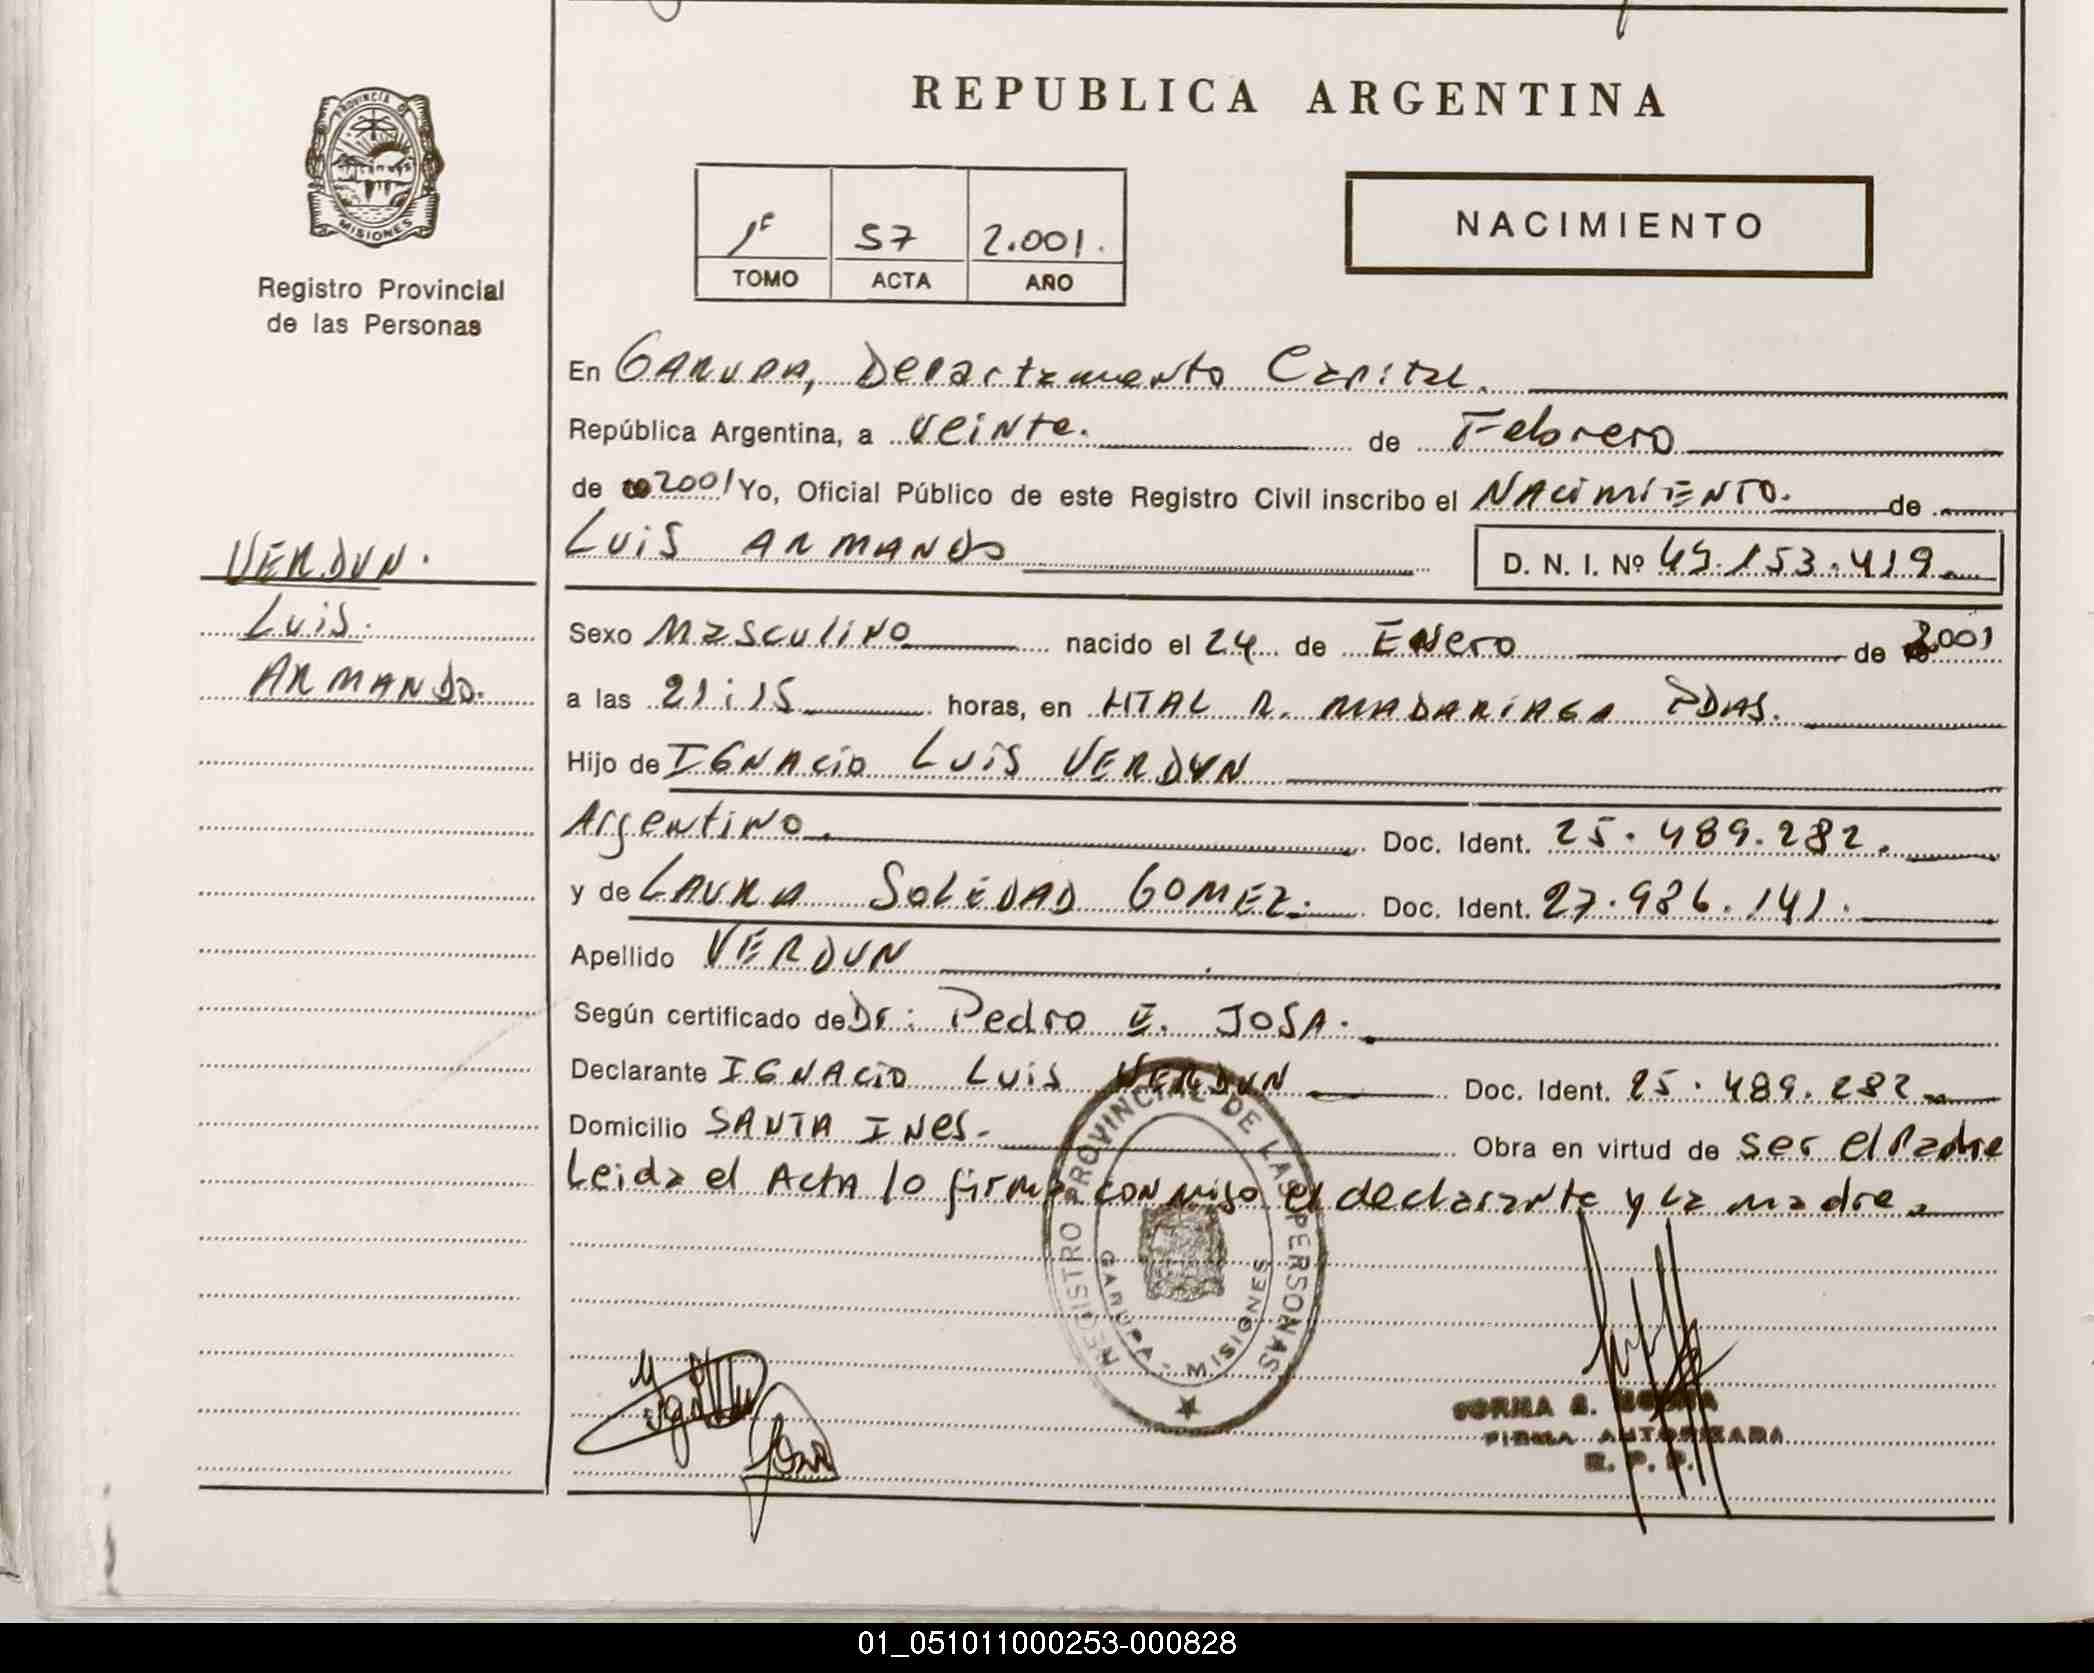 REPUBLICA ARGENTINA
PROVINCIA DE
MISIONES
Registro Provincial
de las Personas
1º 57 2.001.
TOMO ACTA AÑO
NACIMIENTO
En GARUPA, Departamento Capital.
República Argentina, a veinte. de Febrero
de 2001 Yo, Oficial Público de este Registro Civil inscribo el NACIMIENTO. de
VERDUN.
LUIS ARMANDO D. N. I. Nº 43.153.419
Luis.
ARMANDO.
Sexo Masculino nacido el 24 de Enero de 2001
a las 21:15 horas, en HTAL R. MADARIAGA PDAS.
Hijo de IGNACIO LUIS VERDUN
Argentino. Doc. Ident. 25.489.282.
y de LAURA SOLEDAD GOMEZ. Doc. Ident. 27.986.141.
Apellido VERDUN
Según certificado de Dr: Pedro JOSA.
Declarante IGNACIO LUIS VERDUN Doc. Ident. 25.489.282
Domicilio SANTA INES. Obra en virtud de ser el Padre
Leida el Acta lo firma conmigo el declarante y la madre.
REGISTRO PROVINCIAL DE LAS PERSONAS
GARUPA - MISIONES
FIRMA AUTORIZADA
R. P. P.
01_051011000253-000828